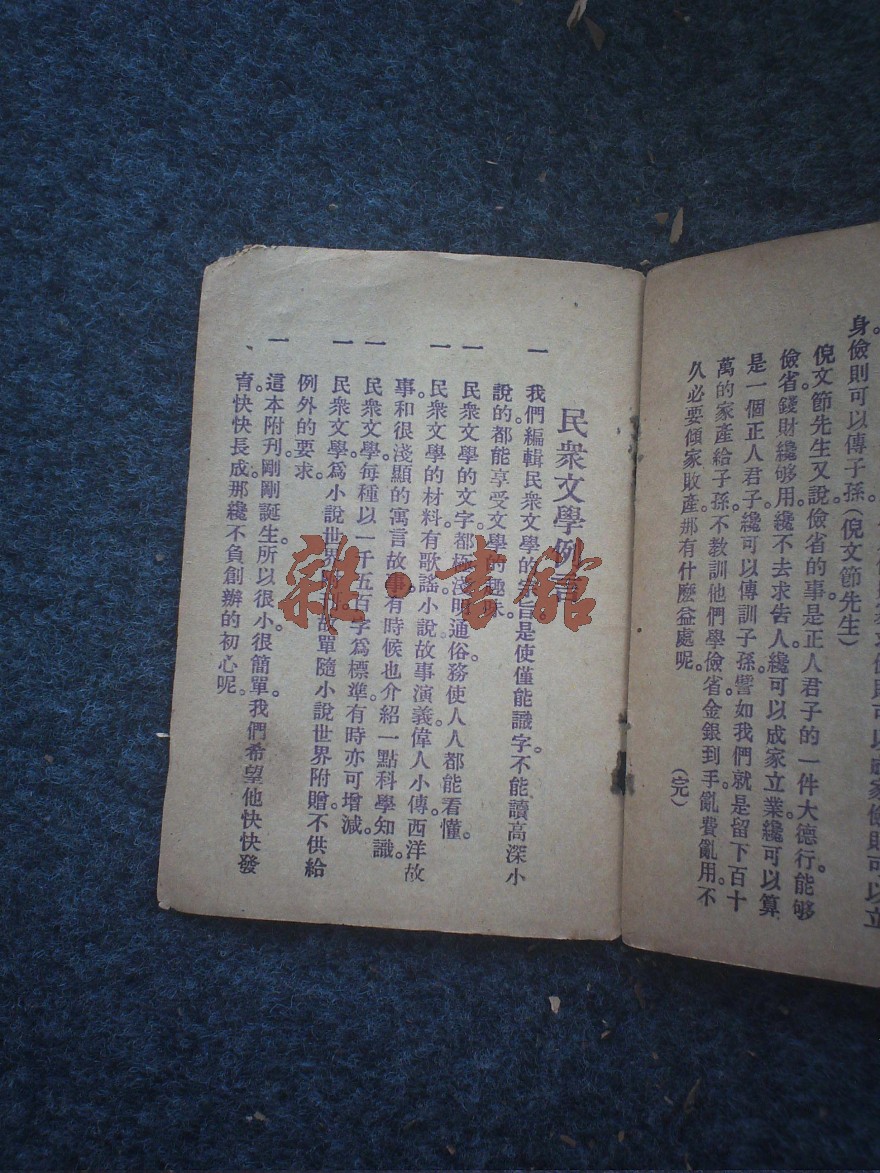 身儉則可以傳子孫。(倪文節先生)
倪文節先生又說儉省的事是正人君子的一件大德行。能够
儉省。錢財纔够用。纔不去求告人。纔可以成家立業。纔可以算
是一個正人君子。纔可以傳訓子孫。譬如我們就是留下百十
萬的家產給子孫。不教訓他們學儉省。金銀到手。亂費亂用。不
久必要傾家敗產。那有什麽益處呢。 (完)
民衆文學例言
一 我們編輯民衆文學的宗旨是使僅能識字。不能讀高深小
說的。都能享受文學的趣味。
一 民衆文學的文字。都極淺明通俗。務使人人都能看懂。
一 民衆文學的材料。有歌謠小說故事演義偉人小傳。西洋故
事和很淺顯的寓言故事。有時候也介紹一點科學知識。
一 民衆文學。每種以一千五百字爲標準。有時亦可增減。
一 民衆文學爲小說世界附刊。故單隨小說世界附贈。不供給
例外的要求。
一 這本附刊。剛剛誕生。所以很小。很簡單。我們希望他快快發
育。快快長成。那纔不負創辦的初心呢。
雜·書館